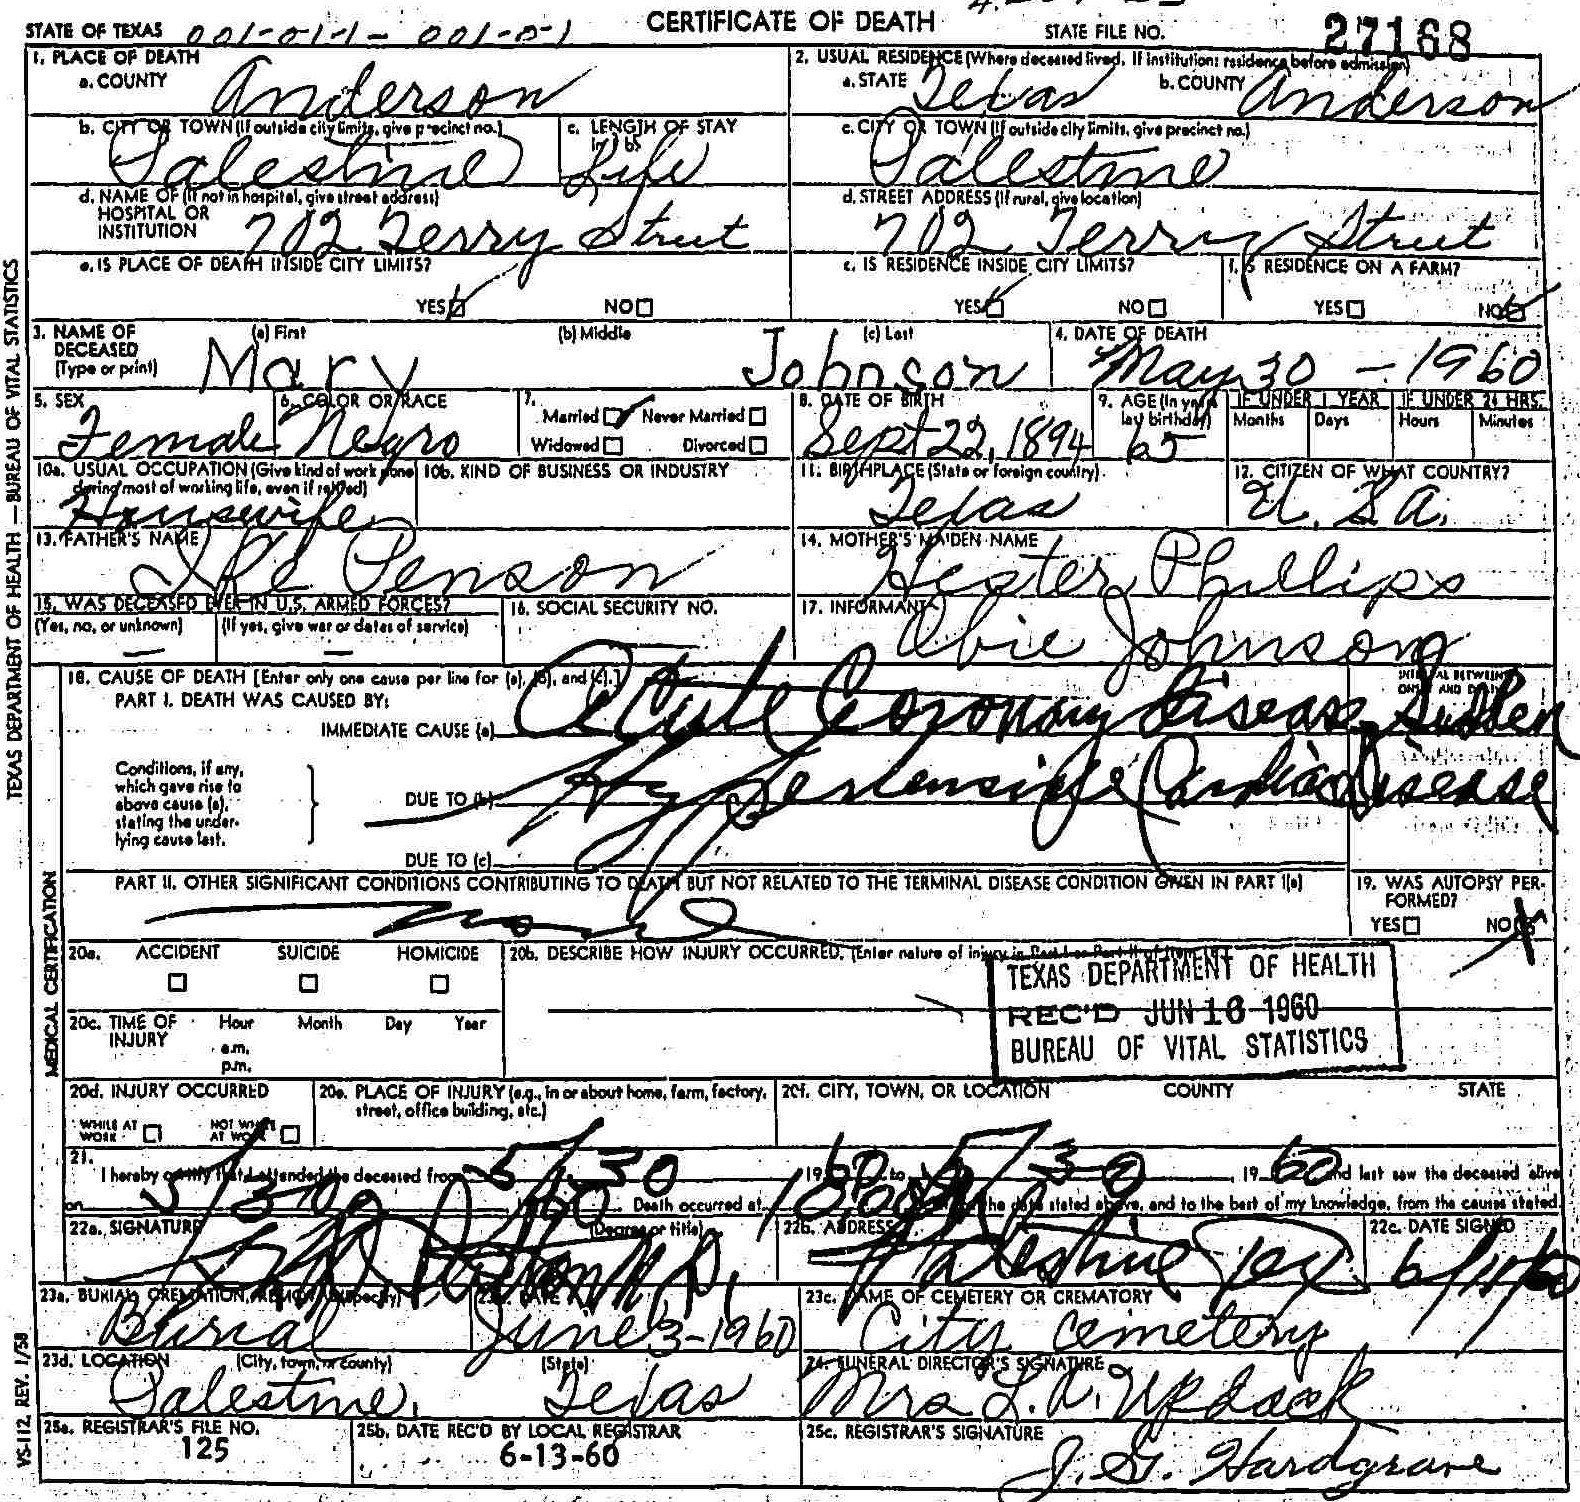 CERTIFICATE OF DEATH
STATE OF TEXAS 001-011- 001-0-1 STATE FILE NO. 27168
1. PLACE OF DEATH
a. COUNTY Anderson
2. USUAL RESIDENCE (Where deceased lived. If institution: residence before admission)
a. STATE Texas b. COUNTY Anderson
b. CITY OR TOWN (If outside city limits, give precinct no.) Palestine
c. LENGTH OF STAY in 1 b. Life
c. CITY OR TOWN (If outside city limits, give precinct no.) Palestine
d. NAME OF (If not in hospital, give street address)
HOSPITAL OR
INSTITUTION 702 Terry Street
d. STREET ADDRESS (If rural, give location)
702 Terry Street
e. IS PLACE OF DEATH INSIDE CITY LIMITS?
YES NO
e. IS RESIDENCE INSIDE CITY LIMITS?
YES NO
f. IS RESIDENCE ON A FARM?
YES NO
3. NAME OF DECEASED (Type or print)
(a) First (b) Middle (c) Last
Mary Johnson
4. DATE OF DEATH
May 30 - 1960
5. SEX
Female
6. COLOR OR RACE
Negro
7.
Married Never Married
Widowed Divorced
8. DATE OF BIRTH
Sept 22, 1894
9. AGE (In years last birthday)
65
IF UNDER 1 YEAR
Months Days
IF UNDER 24 HRS.
Hours Minutes
10a. USUAL OCCUPATION (Give kind of work done
during most of working life, even if retired)
Housewife
10b. KIND OF BUSINESS OR INDUSTRY
11. BIRTHPLACE (State or foreign country)
Texas
12. CITIZEN OF WHAT COUNTRY?
U.S.A.
13. FATHER'S NAME
Ike Penson
14. MOTHER'S MAIDEN NAME
Hester Phillips
15. WAS DECEASED EVER IN U.S. ARMED FORCES?
(Yes, no, or unknown) (If yes, give war or dates of service)
— —
16. SOCIAL SECURITY NO.
17. INFORMANT
Obie Johnson
18. CAUSE OF DEATH [Enter only one cause per line for (a), (b), and (c).]
PART I. DEATH WAS CAUSED BY:
INTERVAL BETWEEN
ONSET AND DEATH
IMMEDIATE CAUSE (a) Acute Coronary Disease, Sudden
Conditions, if any,
which gave rise to
above cause (a),
stating the under-
lying cause last.
DUE TO (b) Hypertensive Cardiac Disease
DUE TO (c)
PART II. OTHER SIGNIFICANT CONDITIONS CONTRIBUTING TO DEATH BUT NOT RELATED TO THE TERMINAL DISEASE CONDITION GIVEN IN PART I(a)
19. WAS AUTOPSY PER-
FORMED?
YES NO
20a. ACCIDENT SUICIDE HOMICIDE
20b. DESCRIBE HOW INJURY OCCURRED. (Enter nature of injury in Part I or Part II of item 18.)
TEXAS DEPARTMENT OF HEALTH
REC'D JUN 16 1960
BUREAU OF VITAL STATISTICS
20c. TIME OF
INJURY
Hour Month Day Year
a.m.
p.m.
20d. INJURY OCCURRED
WHILE AT WORK NOT WHILE AT WORK
20e. PLACE OF INJURY (e.g., in or about home, farm, factory,
street, office building, etc.)
20f. CITY, TOWN, OR LOCATION COUNTY STATE
21.
I hereby certify that I attended the deceased from 5/30 1960 to 5/30, 1960 and last saw the deceased alive
on 5/30 1960 Death occurred at the date stated above, and to the best of my knowledge, from the causes stated.
22a. SIGNATURE (Degree or title)
M.D.
22b. ADDRESS
Palestine Tex
22c. DATE SIGNED
6/11/60
23a. BURIAL, CREMATION, REMOVAL (Specify)
Burial
23b. DATE
June 3-1960
23c. NAME OF CEMETERY OR CREMATORY
City Cemetery
23d. LOCATION (City, town, or county) (State)
Palestine, Texas
24. FUNERAL DIRECTOR'S SIGNATURE
Mrs L.A. Updack
25a. REGISTRAR'S FILE NO.
125
25b. DATE REC'D BY LOCAL REGISTRAR
6-13-60
25c. REGISTRAR'S SIGNATURE
J. G. Hardgrave
TEXAS DEPARTMENT OF HEALTH — BUREAU OF VITAL STATISTICS
MEDICAL CERTIFICATION
VS-112, REV. 1/58